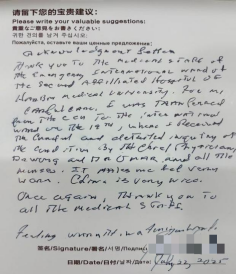 请留下您的宝贵建议：
Please write your valuable suggestions:
貴重なご意見をお書きください:
귀한 건의를 남겨 주십시오:
Пожалуйста, оставьте ваши ценные предложения:
Acknowledgment Letter
Thank you to the medical staff of
the Emergency International ward of
the Second Affiliated Hospital of
Harbin Medical University. For my
ambulance, I was transferred
from the to the international
ward on the 19th, where I received
the and detailed inquiry of
the condition by the Chief Physician,
and and all the
nurses. It makes me feel very
warm. China is very nice.
Once again, thank you to
all the medical staff.
签名/Signature/署名/서명/
日期/Date/日付/날짜/Дата: July 22, 2025